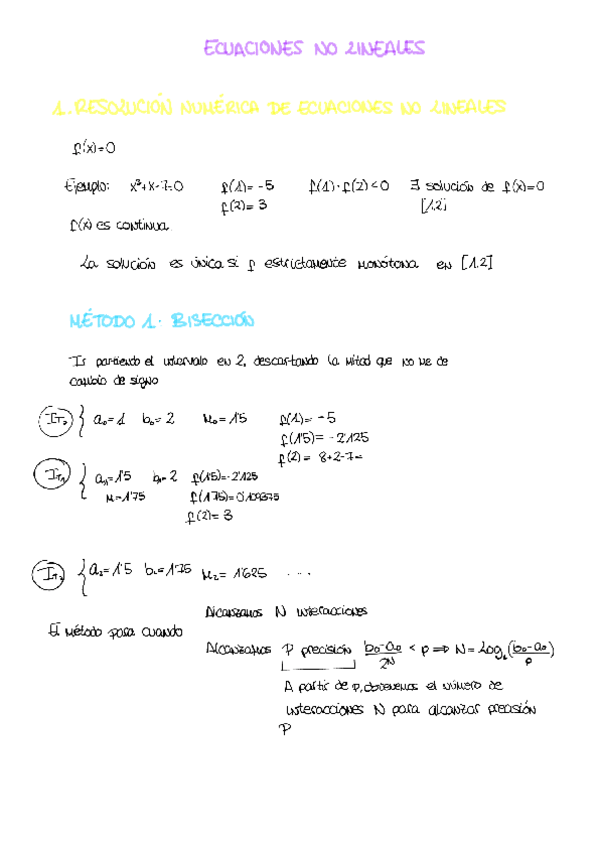 ECUACIONES NO LINEALES
1. RESOLUCIÓN NUMÉRICA DE ECUACIONES NO LINEALES
f(x)=0
Ejemplo: x³+x-7=0 f(1)=-5 f(1)·f(2)<0 ∃ solución de f(x)=0
f(2)=3 [1,2]
f(x) es continua.
La solución es única si f estrictamente monótona en [1,2]
MÉTODO 1. BISECCIÓN
Ir partiendo el intervalo en 2, descartando la mitad que no me de
cambio de signo
a₀=1 b₀=2 M₀=1'5 f(1)=-5
f(1'5)=-2'125
f(2)= 8+2-7=
IT₁ { a₁=1'5 b₁=2 f(1'5)=-2'125
M=1'75 f(1'75)=0'109375
f(2)=3
IT₂ { a₂=1'5 b₂=1'75 M₂=1'625 ...
Alcanzamos N interacciones
El método para cuando
Alcanzamos P precisión b₀-a₀/2N < p ⇒ N=Log₂(b₀-a₀/p)
A partir de p, obtenemos el número de
interacciones N para alcanzar precisión
P